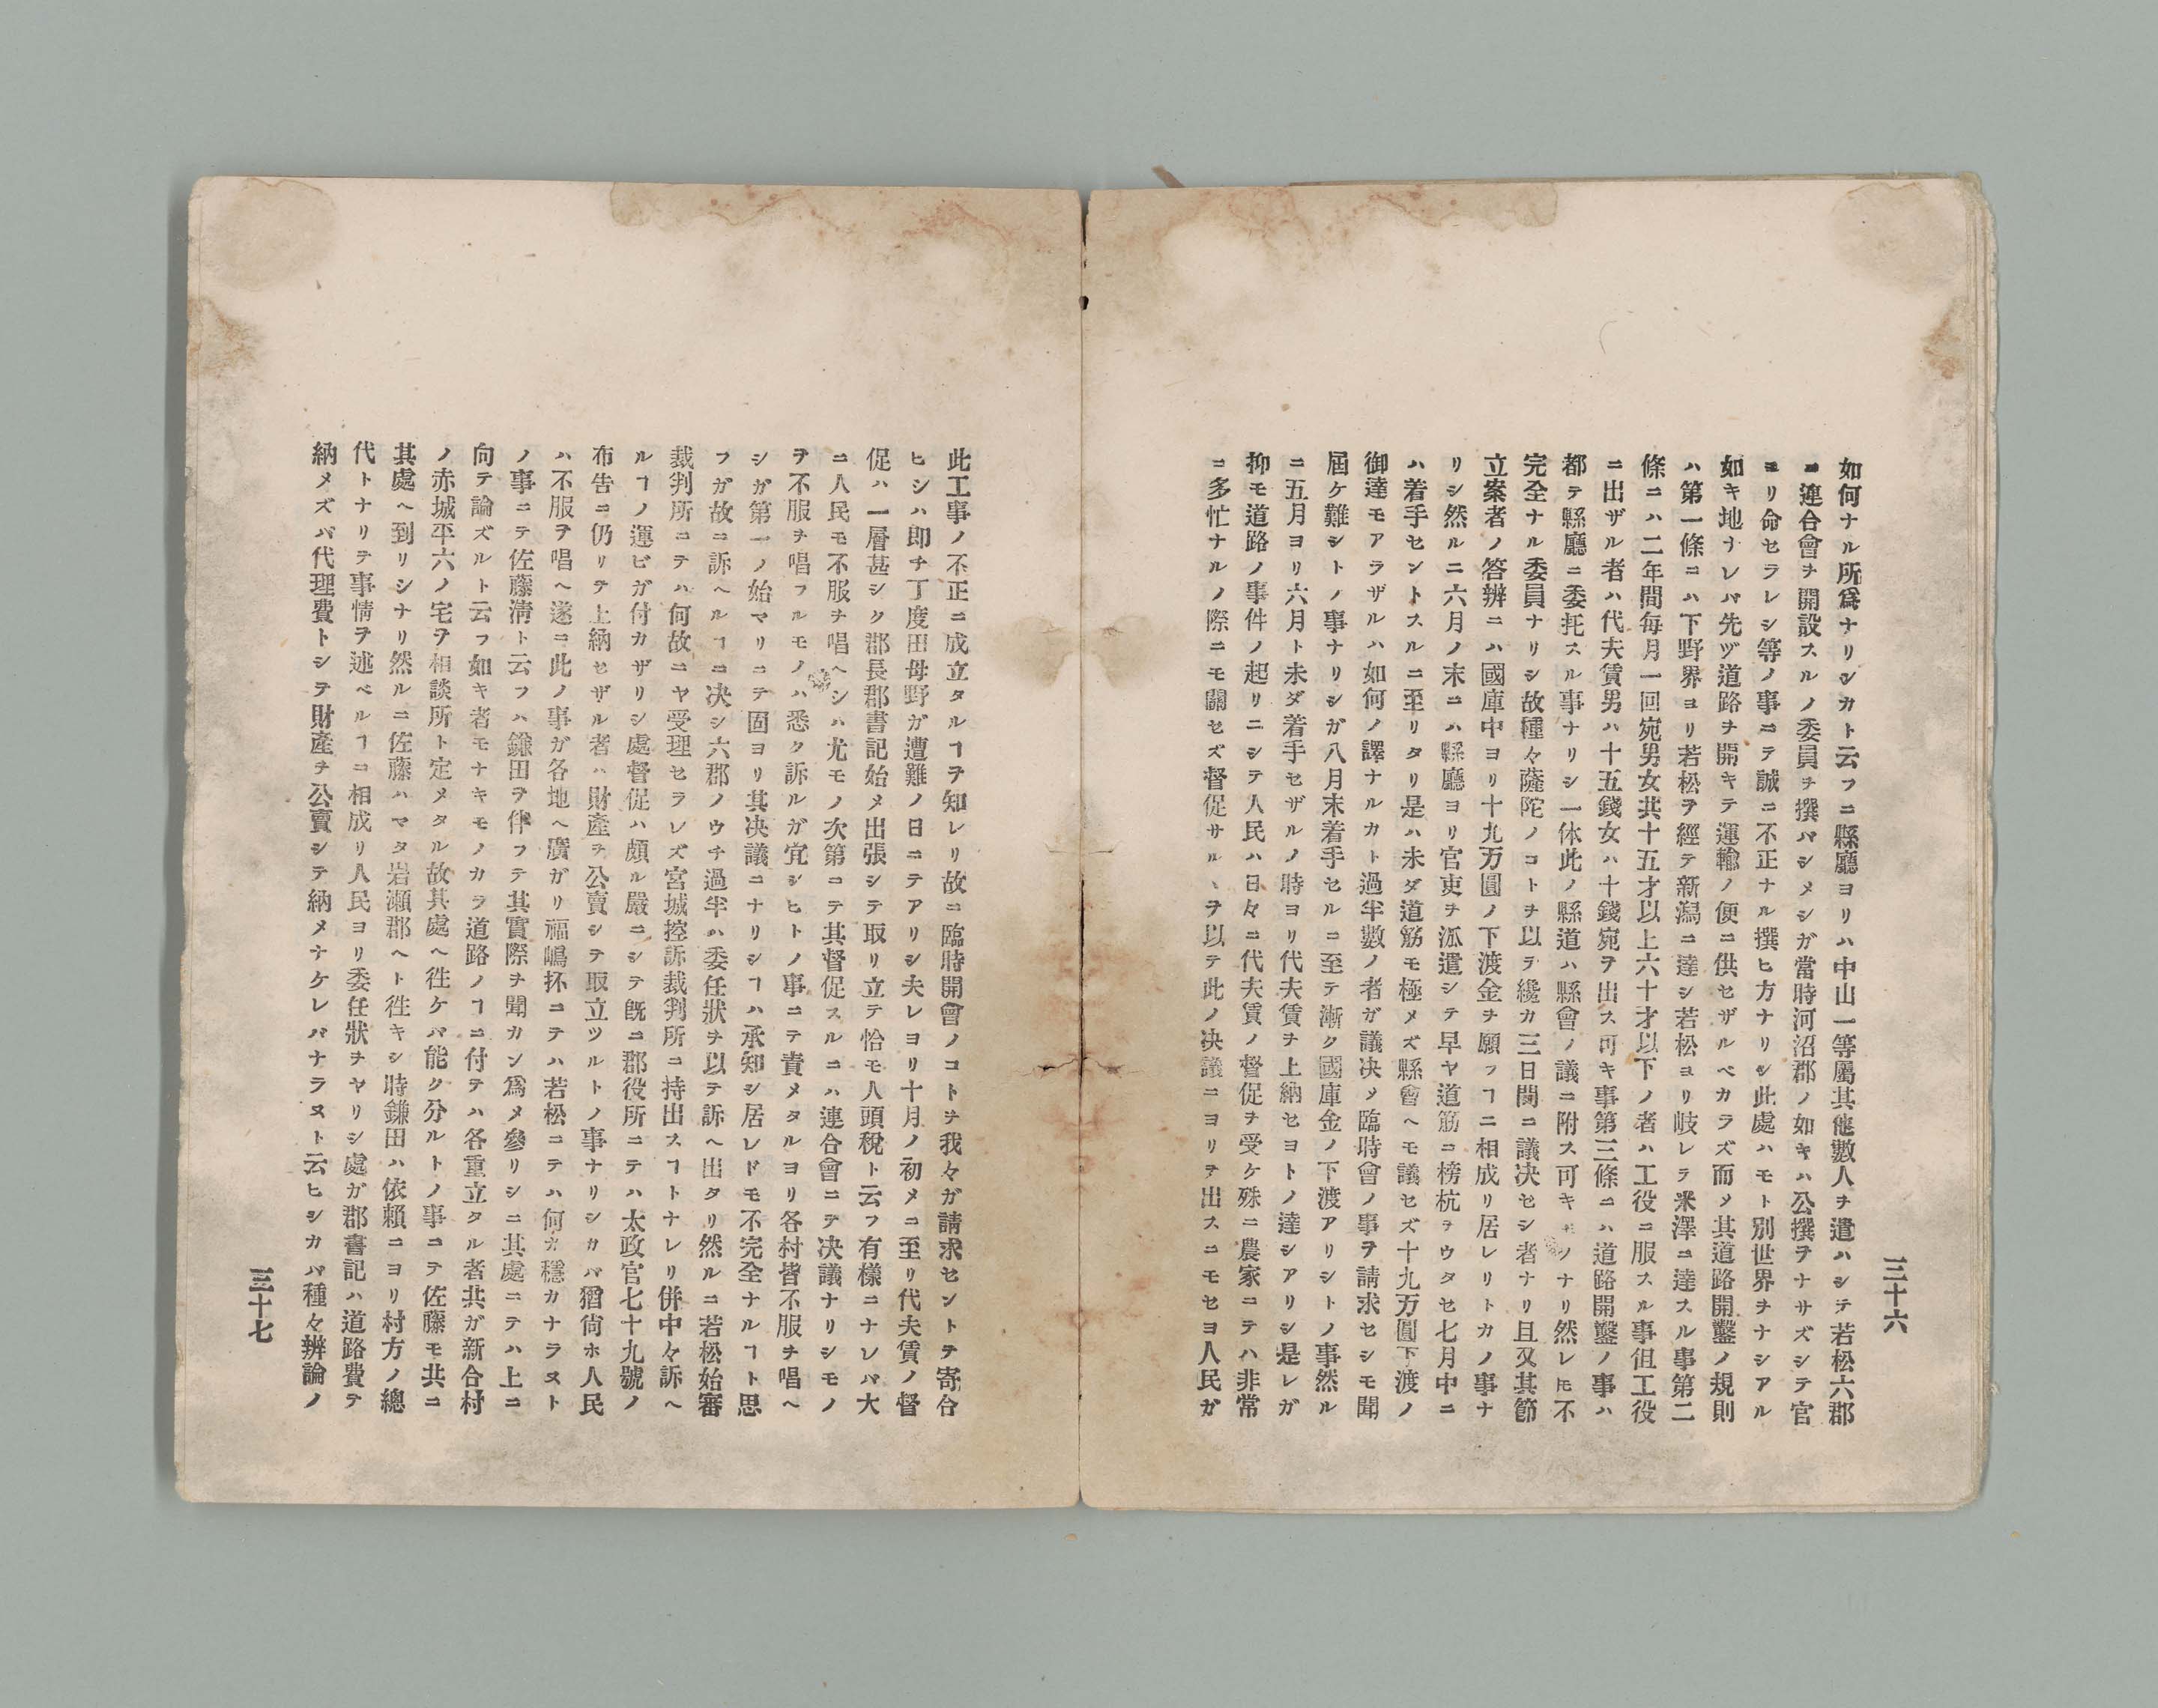 三十六
如何ナル所爲ナリシカト云フニ縣廳ヨリハ中山一等屬其他數人ヲ遣ハシテ若松六郡
ニ連合會ヲ開設スルノ委員ヲ撰バシメシガ當時河沼郡ノ如キハ公撰ヲナサズシテ官
ヨリ命セラレシ等ノ事ニテ誠ニ不正ナル撰ヒ方ナリシ此處ハモト別世界ヲナシアル
如キ地ナレバ先ヅ道路ヲ開キテ運輸ノ便ニ供セザルベカラズ而メ其道路開鑿ノ規則
ハ第一條ニハ下野界ヨリ若松ヲ經テ新潟ニ達シ若松ヨリ岐レテ米澤ニ達スル事第二
條ニハ二年間毎月一回宛男女共十五才以上六十才以下ノ者ハ工役ニ服スル事伹工役
ニ出ザル者ハ代夫賃男ハ十五錢女ハ十錢宛ヲ出ス可キ事第三條ニハ道路開鑿ノ事ハ
都テ縣廳ニ委托スル事ナリシ一休此ノ縣道ハ縣會ノ議ニ附ス可キモノナリ然レ𪜈不
完全ナル委員ナリシ故種々薩陀ノコトヲ以テ纔カ三日間ニ議決セシ者ナリ且又其節
立案者ノ答辨ニハ國庫中ヨリ十九万圓ノ下渡金ヲ願フヿニ相成リ居レリトカノ事ナ
リシ然ルニ六月ノ末ニハ縣廳ヨリ官吏ヲ派遣シテ早ヤ道筋ニ榜杭ヲウタセ七月中ニ
ハ着手セントスルニ至リタリ是ハ未ダ道筋モ極メズ縣會ヘモ議セズ十九万圓下渡ノ
御達モアラザルハ如何ノ譯ナルカト過半數ノ者ガ議决メ臨時會ノ事ヲ請求セシモ聞
屆ケ難シトノ事ナリシガ八月末着手セルニ至テ漸ク國庫金ノ下渡アリシトノ事然ル
ニ五月ヨリ六月ト未ダ着手セザルノ時ヨリ代夫賃ヲ上納セヨトノ達シアリシ是レガ
抑モ道路ノ事件ノ起リニシテ人民ハ日々ニ代夫賃ノ督促ヲ受ケ殊ニ農家ニテハ非常
ニ多忙ナルノ際ニモ關セズ督促サルヽヲ以テ此ノ决議ニヨリテ出スニモセヨ人民ガ
此工事ノ不正ニ成立タルヿヲ知レリ故ニ臨時開會ノコトヲ我々ガ請求セントテ寄合
ヒシハ即チ丁度田母野ガ遭難ノ日ニテアリシ夫レヨリ十月ノ初メニ至リ代夫賃ノ督
促ハ一層甚シク郡長郡書記始メ出張シテ取リ立テ恰モ人頭稅ト云フ有樣ニナレバ大
ニ人民モ不服ヲ唱ヘシハ尤モノ次第ニテ其督促スルニハ連合會ニテ决議ナリシモノ
ヲ不服ヲ唱フルモノハ悉ク訴ルガ宜シヒトノ事ニテ責メタルヨリ各村皆不服ヲ唱ヘ
シガ第一ノ始マリニテ固ヨリ其决議ニナリシヿハ承知シ居レドモ不完全ナルヿト思
フガ故ニ訴ヘルヿニ决シ六郡ノウチ過半ハ委任狀ヲ以テ訴ヘ出タリ然ルニ若松始審
裁判所ニテハ何故ニヤ受理セラレズ宮城控訴裁判所ニ持出スヿトナレリ併中々訴ヘ
ルヿノ運ビガ付カザリシ處督促ハ頗ル嚴ニシテ既ニ郡役所ニテハ太政官七十九號ノ
布告ニ仍リテ上納セザル者ハ財產ヲ公賣シテ取立ツルトノ事ナリシカバ猶尙ホ人民
ハ不服ヲ唱ヘ遂ニ此ノ事ガ各地ヘ廣ガリ福嶋抔ニテハ若松ニテハ何カ穩カナラヌト
ノ事ニテ佐藤淸ト云フハ鎌田ヲ伴フテ其實際ヲ聞カン爲メ參リシニ其處ニテハ上ニ
向テ論ズルト云フ如キ者モナキモノカラ道路ノヿニ付テハ各重立タル者共ガ新合村
ノ赤城平六ノ宅ヲ相談所ト定メタル故其處ヘ徃ケバ能ク分ルトノ事ニテ佐藤モ共ニ
其處ヘ到リシナリ然ルニ佐藤ハマタ岩瀨郡ヘト徃キシ時鎌田ハ依賴ニヨリ村方ノ總
代トナリテ事情ヲ述ベルヿニ相成リ人民ヨリ委任狀ヲヤリシ處ガ郡書記ハ道路費テ
納メズバ代理費トシテ財產ヲ公賣シテ納メナケレバナラヌト云ヒシカバ種々辨論ノ
三十七